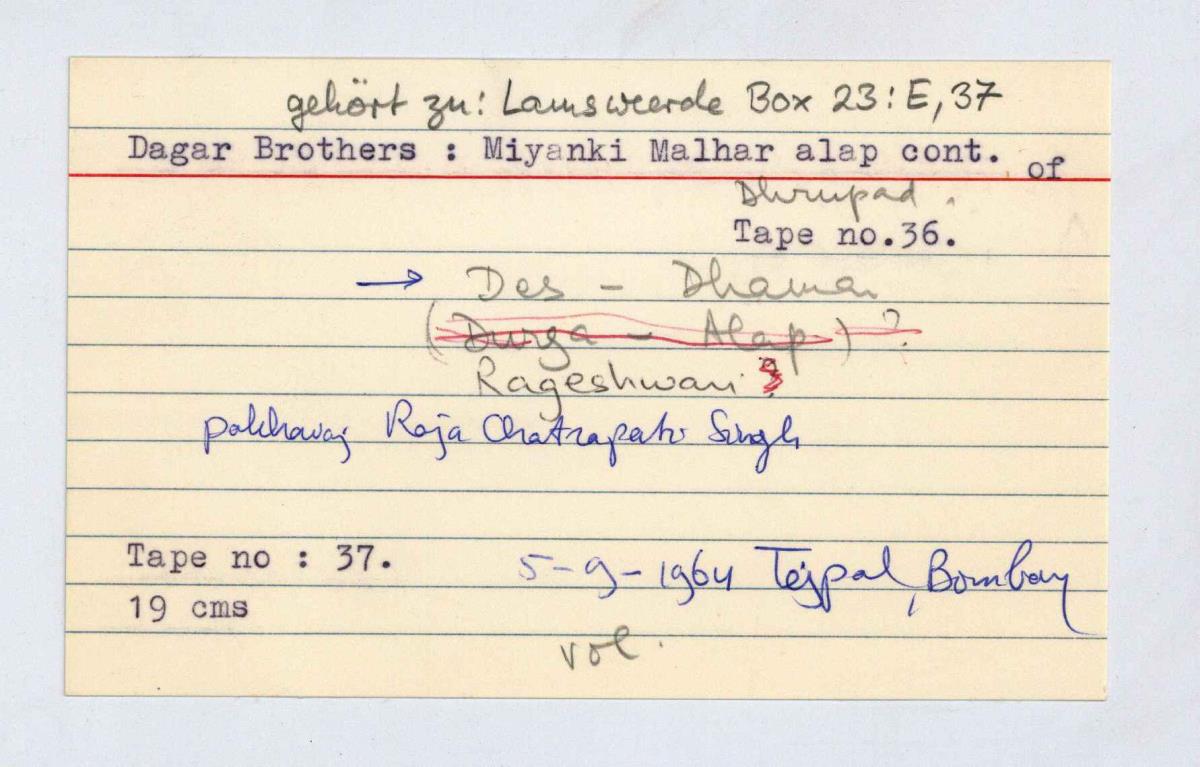 gehört zu: Lamsweerde Box 23: E, 37
Dagar Brothers : Miyanki Malhar alap cont. of
Dhrupad.
Tape no.36.
→ Des - Dhamar
(Durga - Alap) ?
Rageshwari ?
pakhavaj Raja Chatrapati Singh
Tape no : 37. 5-9-1964 Tejpal, Bombay
19 cms
vol.